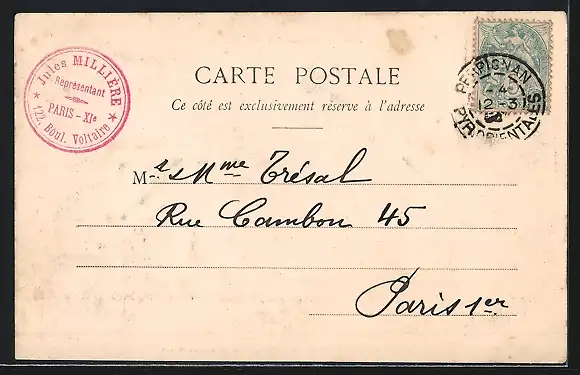 Jules MILLIÈRE
Représentant
PARIS - XIe
122, Boul. Voltaire
CARTE POSTALE
Ce côté est exclusivement réservé à l'adresse
PERPIGNAN
4
12 -3
PYR. ORIENTALES
Mr & Mme Trésal
Rue Cambon 45
Paris 1er